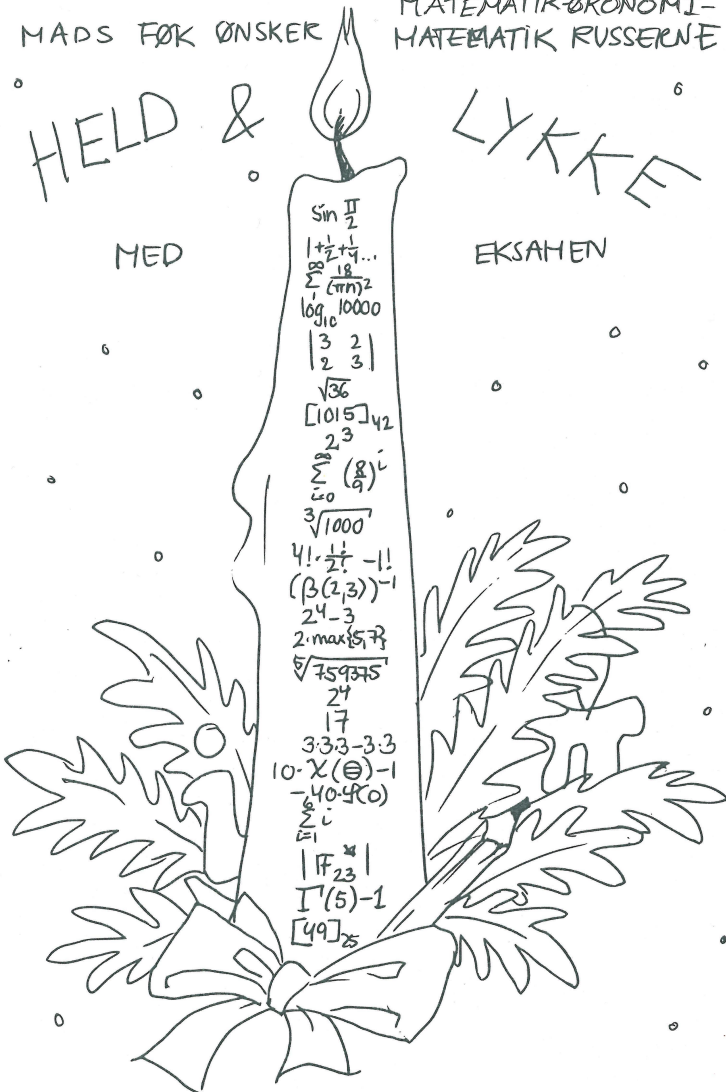 MADS FØK ØNSKER
MATEMATIK-ØKONOMI-
MATEMATIK RUSSERNE
HELD & LYKKE
MED EKSAMEN
sin π/2
1+1/2+1/4...
∞ Σ 1 18/(πn)²
log₁₀ 10000
|3 2|
|2 3|
√36
[1015]₄₂
2³
∞ Σ i=0 (8/9)ⁱ
³√1000
4!·1!/2! -1!
(β(2,3))⁻¹
2⁴-3
2·max{5,7}
⁵√759375
2⁴
17
3·3·3-3·3
10·χ(⊖)-1
-40·φ(0)
6 Σ i=1 i
|𝔽₂₃*|
Γ(5)-1
[49]₂₅